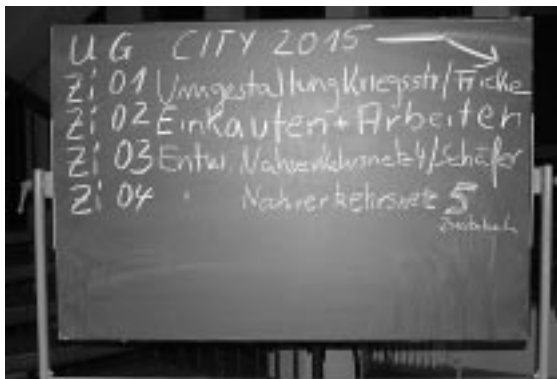 UG CITY 2015
Zi 01 Umgestaltung Kriegsstr/Fricke
Zi 02 Einkaufen + Arbeiten
Zi 03 Entw. Nahverkehrsnetz 4/Schäfer
Zi 04 " Nahverkehrsnetz 5